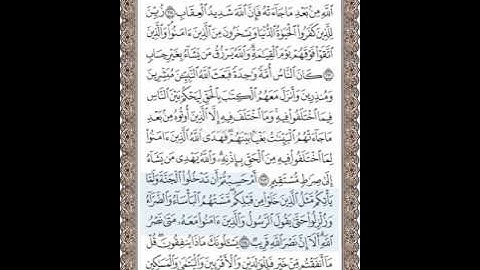 ٱللَّهِ مِنۢ بَعْدِ مَا جَآءَتْهُ فَإِنَّ ٱللَّهَ شَدِيدُ ٱلْعِقَابِ ٢١١ زُيِّنَ
لِلَّذِينَ كَفَرُوا۟ ٱلْحَيَوٰةُ ٱلدُّنْيَا وَيَسْخَرُونَ مِنَ ٱلَّذِينَ ءَامَنُوا۟ وَٱلَّذِينَ
ٱتَّقَوْا۟ فَوْقَهُمْ يَوْمَ ٱلْقِيَٰمَةِ وَٱللَّهُ يَرْزُقُ مَن يَشَآءُ بِغَيْرِ حِسَابٍ
٢١٢ كَانَ ٱلنَّاسُ أُمَّةً وَٰحِدَةً فَبَعَثَ ٱللَّهُ ٱلنَّبِيِّـۧنَ مُبَشِّرِينَ
وَمُنذِرِينَ وَأَنزَلَ مَعَهُمُ ٱلْكِتَٰبَ بِٱلْحَقِّ لِيَحْكُمَ بَيْنَ ٱلنَّاسِ
فِيمَا ٱخْتَلَفُوا۟ فِيهِ وَمَا ٱخْتَلَفَ فِيهِ إِلَّا ٱلَّذِينَ أُوتُوهُ مِنۢ بَعْدِ
مَا جَآءَتْهُمُ ٱلْبَيِّنَٰتُ بَغْيًۢا بَيْنَهُمْ فَهَدَى ٱللَّهُ ٱلَّذِينَ ءَامَنُوا۟
لِمَا ٱخْتَلَفُوا۟ فِيهِ مِنَ ٱلْحَقِّ بِإِذْنِهِۦ وَٱللَّهُ يَهْدِى مَن يَشَآءُ
إِلَىٰ صِرَٰطٍ مُّسْتَقِيمٍ ٢١٣ أَمْ حَسِبْتُمْ أَن تَدْخُلُوا۟ ٱلْجَنَّةَ وَلَمَّا
يَأْتِكُم مَّثَلُ ٱلَّذِينَ خَلَوْا۟ مِن قَبْلِكُم مَّسَّتْهُمُ ٱلْبَأْسَآءُ وَٱلضَّرَّآءُ
وَزُلْزِلُوا۟ حَتَّىٰ يَقُولَ ٱلرَّسُولُ وَٱلَّذِينَ ءَامَنُوا۟ مَعَهُۥ مَتَىٰ نَصْرُ
ٱللَّهِ أَلَآ إِنَّ نَصْرَ ٱللَّهِ قَرِيبٌ ٢١٤ يَسْـَٔلُونَكَ مَاذَا يُنفِقُونَ قُلْ
مَآ أَنفَقْتُم مِّنْ خَيْرٍ فَلِلْوَٰلِدَيْنِ وَٱلْأَقْرَبِينَ وَٱلْيَتَٰمَىٰ وَٱلْمَسَٰكِينِ